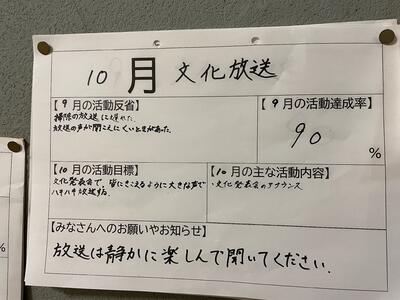 10 月 文化放送
【9月の活動反省】
掃除の放送に遅れた。
放送の声が聞こえにくいときがあった。
【9月の活動達成率】
90
%
【10月の活動目標】
文化発表会で、皆にきこえるように大きな声で
ハキハキ放送する。
【10月の主な活動内容】
・文化発表会のアナウンス
【みなさんへのお願いやお知らせ】
放送は静かに楽しんで聞いてください。